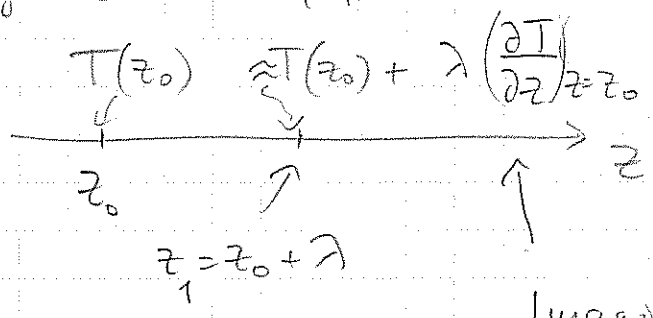 T(z₀) ≈T(z₀) + λ(∂T/∂z)z=z₀
z₀ z
z₁ = z₀ + λ